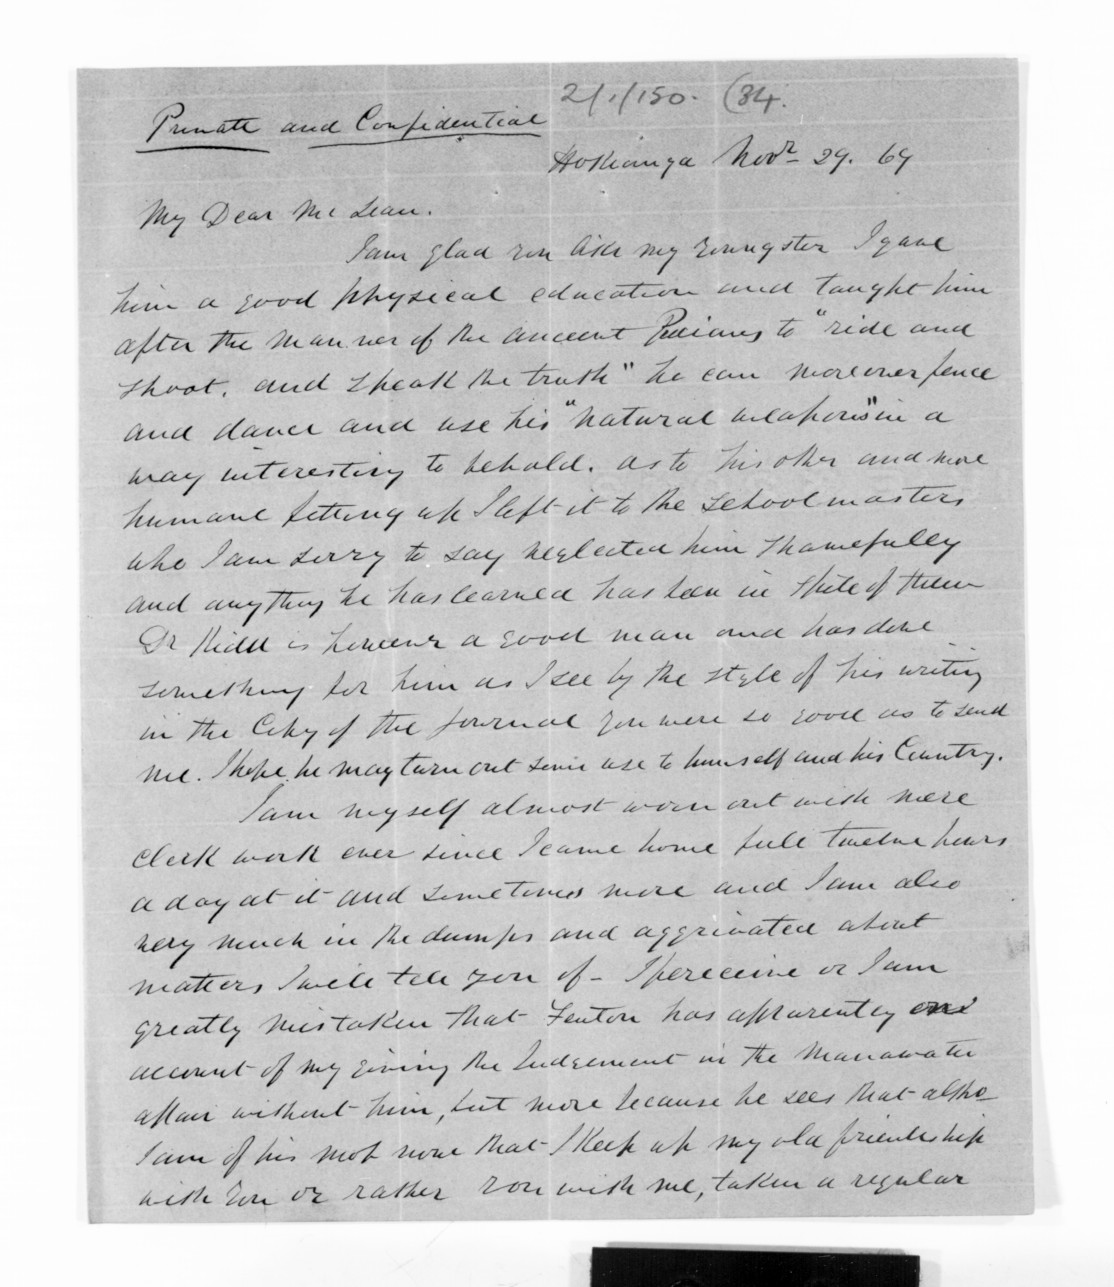 2/1/150. (84.
Private and Confidential
Hokianga Novr 29. 69
My Dear McLean.
I am glad you like my youngster I gave
him a good physical education and taught him
after the manner of the ancient to "ride and
shoot, and speak the truth" he can moreover fence
and dance and use his "natural weapons" in a
way interesting to behold. as to his other and more
humane fitting up I left it to the schoolmasters
who I am sorry to say neglected him shamefully
and anything he has learned has been in spite of them
Dr Kidd is however a good man and has done
something for him as I see by the style of his writing
in the Copy of the Journal you were so good as to send
me. I hope he may turn out some use to himself and his Country.
I am myself almost worn out with mere
clerk work ever since I came home full twelve hours
a day at it and sometimes more and I am also
very much in the dumps and aggrivated about
matters I will tell you of - I perceive or I am
greatly mistaken that Fenton has apparently on
account of my giving the Judgement in the Manawatu
affair without him, but more because he sees that altho
I am of his mob now that I keep up my old friendship
with you or rather you with me, taken a regular